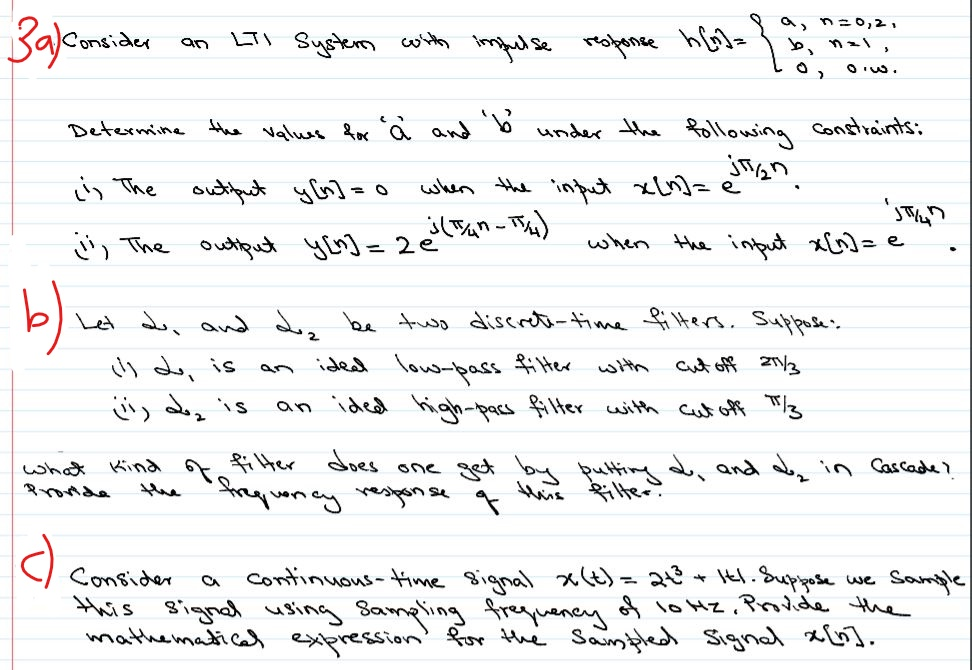 3a) Consider an LTI System with impulse response h[n] = { a, n=0,2,
b, n=1,
0, o.w.
Determine the values for 'a' and 'b' under the following constraints:
(i) The output y[n] = 0 when the input x[n] = e^{jπ/2 n}.
(ii) The output y[n] = 2e^{j(π/4 n - π/4)} when the input x[n] = e^{jπ/4 n}.
b) Let 𝓛₁ and 𝓛₂ be two discrete-time filters. Suppose:
(i) 𝓛₁ is an ideal low-pass filter with cut off 2π/3
(ii) 𝓛₂ is an ideal high-pass filter with cut off π/3
What kind of filter does one get by putting 𝓛₁ and 𝓛₂ in Cascade?
Provide the frequency response of this filter.
c) Consider a continuous-time signal x(t) = 2t³ + |t|. Suppose we sample
this signal using Sampling frequency of 10 Hz. Provide the
mathematical expression for the Sampled signal x[n].